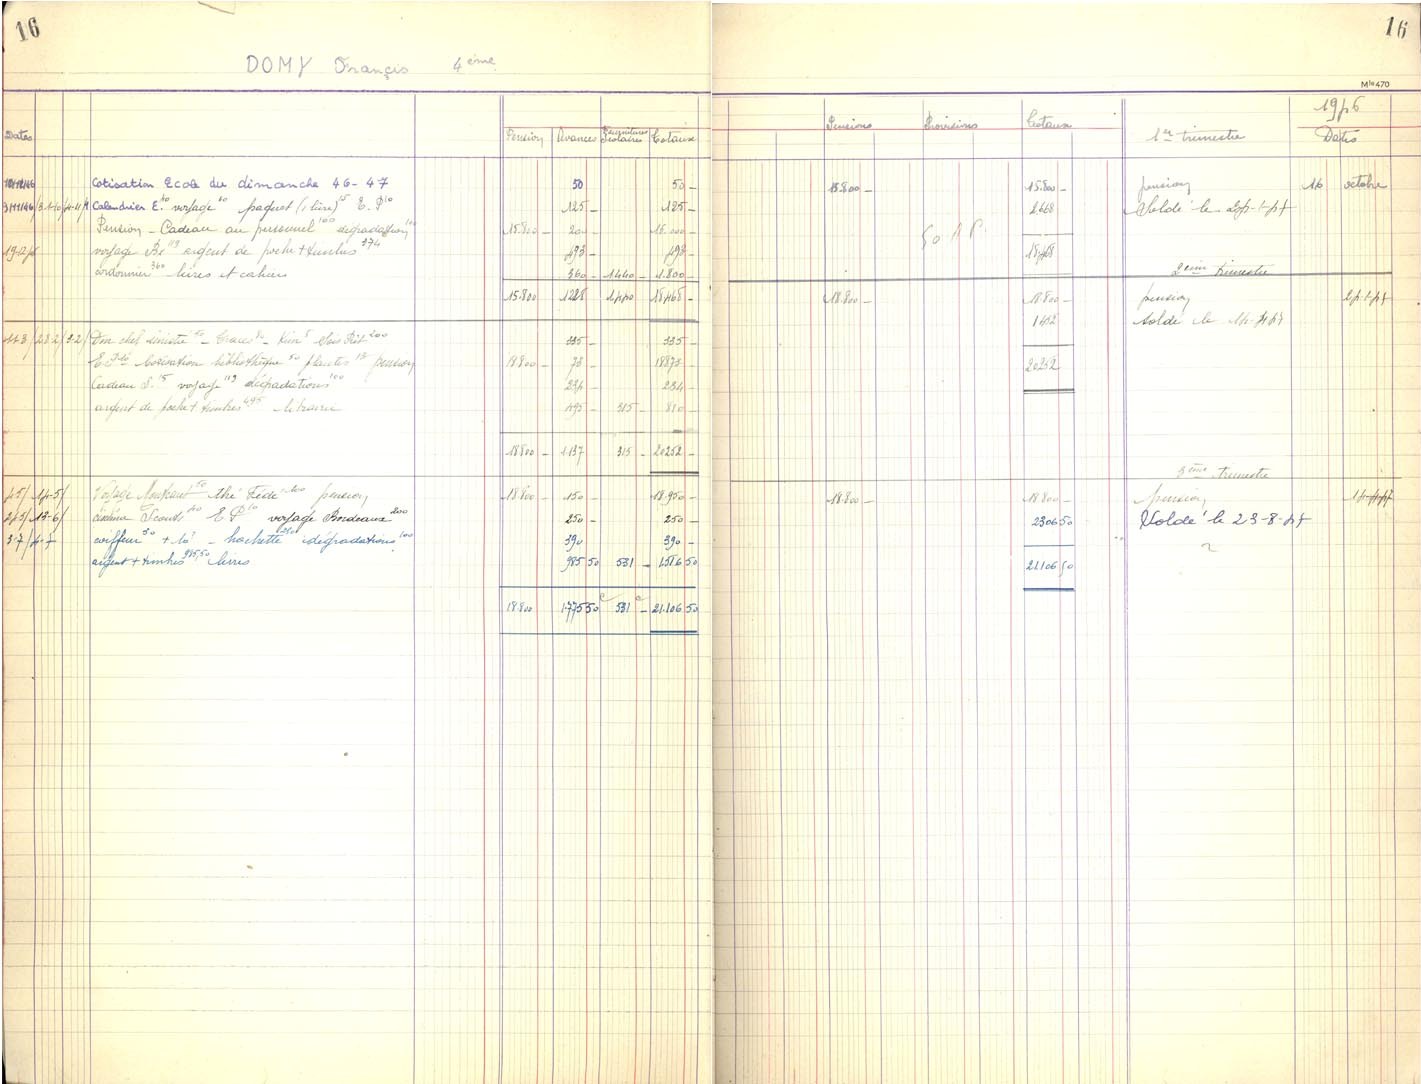 16
DOMY Francis 4ème
Dates Pension Avances Fournitures Scolaires Totaux
Cotisation Ecole du dimanche 46-47 50 50 -
Calendrier E. voyage paquet (1 livre) 15 E. P 10 125 - 125 -
Pension - Cadeau au personnel 100 dégradation 100 15.800 - 200 - 16.000 -
19-12/6 voyage 119 argent de poche + timbres 374 493 - 493 -
cordonnier 360 livres et cahiers 360 - 1440 - 1.800 -
15.800 1228 1440 18468 -
Don chef sinistré 50 335 - 335 -
Cotisation bibliothèque 50 plantes pension 18800 - 73 - 18873 -
Cadeau S. 15 voyage 119 dégradations 100 234 - 234 -
argent de poche + timbres 495 librairie 495 - 315 - 810 -
18800 - 1137 315 - 20252 -
4-5/ 14-5/ Voyage 50 thé Fédé 100 pension 18.800 - 150 - 18.950 -
24-5/ 13-6/ Scouts 40 E P 10 voyage Bordeaux 200 250 - 250 -
3-7/ 4-7 coiffeur 30 + 10 - hachette 250 dégradations 100 390 - 390 -
argent + timbres 985,50 livres 985 50 531 - 1516 50
18.800 1.775 50 531 - 21.106 50
16
Mle 470
Pensions Provisions Totaux 1er trimestre 1946
Dates
15.800 - 15.800 - pension 16 octobre
2668 Soldé le
50 A P.
18468
2ème trimestre
18.800 - 18.800 - pension
1452 soldé le
20252
3ème trimestre
18.800 - 18.800 - pension
2306 50 Soldé le 23-8-47
21106 50